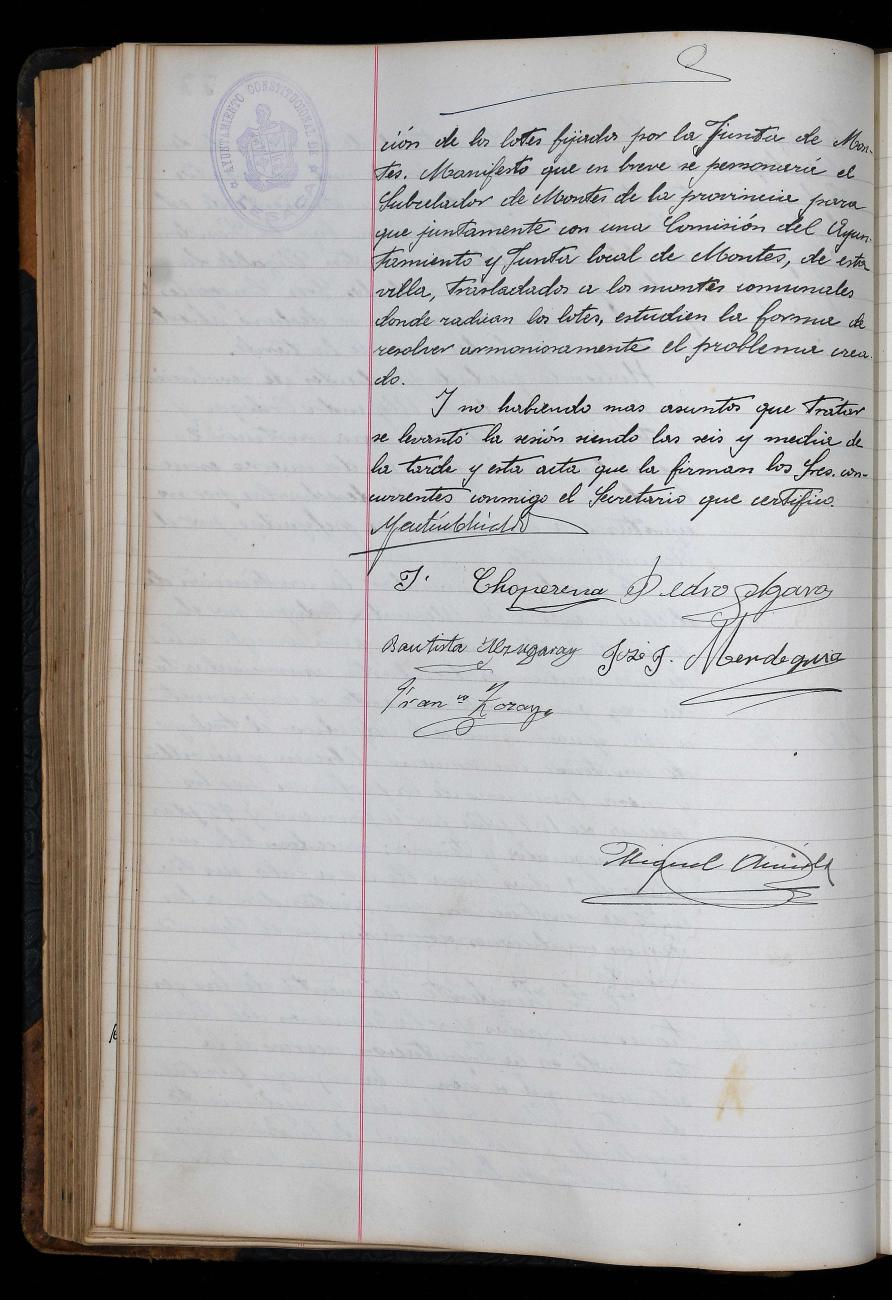 AYUNTAMIENTO CONSTITUCIONAL DE
LESACA
ción de los lotes fijados por la Junta de Mon-
tes. Manifesto que en breve se personará el
Subcelador de Montes de la provincia para
que juntamente con una Comisión del Ayun-
tamiento y Junta local de Montes, de esta
villa, trasladados a los montes comunales
donde radican los lotes, estudien la forma de
resolver armoniosamente el problema crea-
do.
Y no habiendo mas asuntos que tratar
se levantó la sesión siendo las seis y media de
la tarde y esta acta que la firman los Sres. con-
currentes conmigo el Secretario que certifico.
J. Choperena Pedro
Bautista José J. Mendeguia
Fran co
Miguel